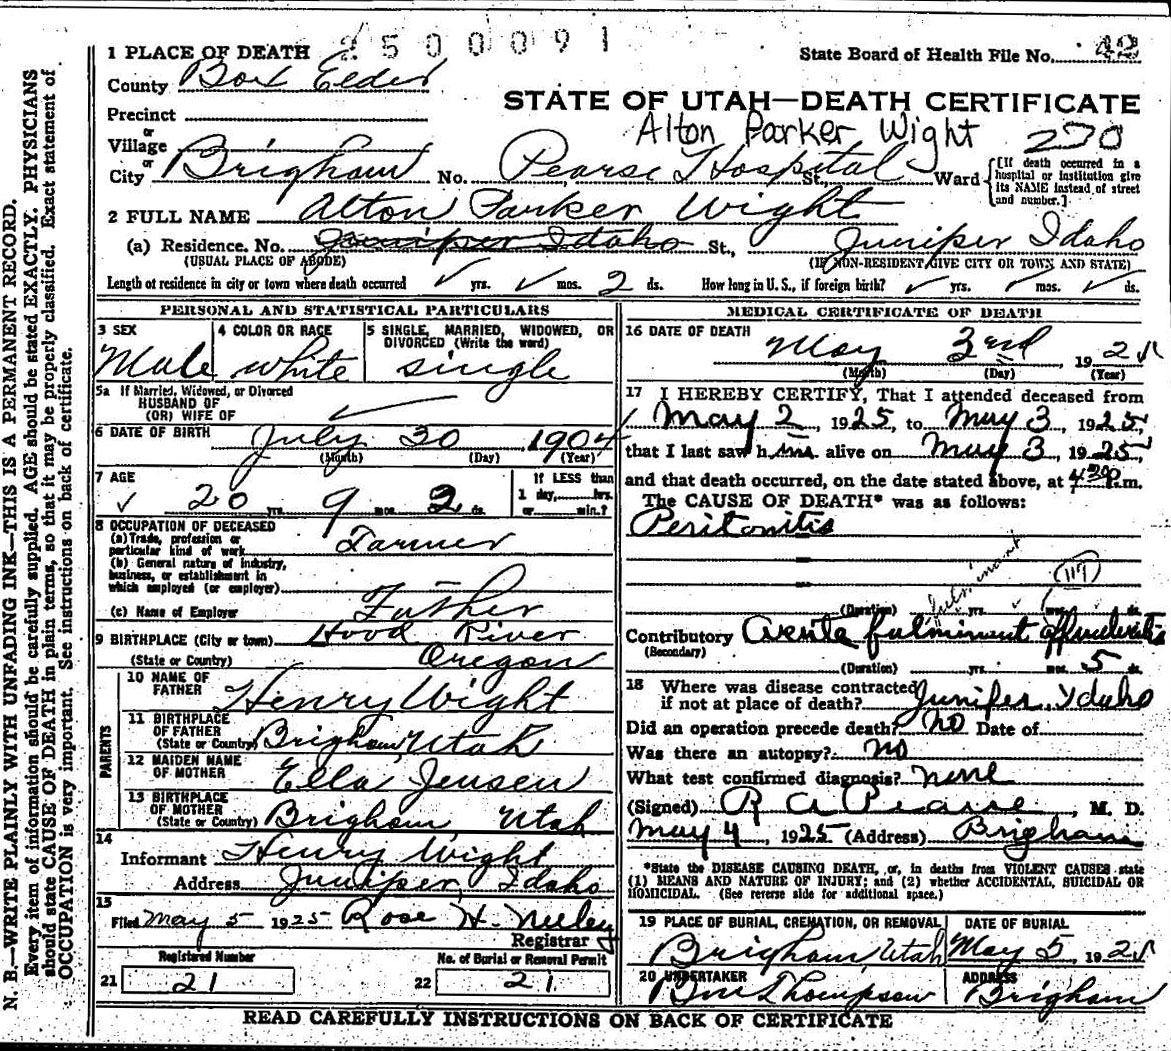 2500091
1 PLACE OF DEATH
State Board of Health File No. 42
County Box Elder
STATE OF UTAH—DEATH CERTIFICATE
Precinct
Alton Parker Wight 270
or
Village
or
City Brigham No. Pearse Hospital St., Ward
[If death occurred in a hospital or institution give its NAME instead of street and number.]
2 FULL NAME Alton Parker Wight
(a) Residence. No. Juniper Idaho St., Juniper Idaho
(USUAL PLACE OF ABODE) (IF NON-RESIDENT GIVE CITY OR TOWN AND STATE)
Length of residence in city or town where death occurred ✓ yrs. ✓ mos. 2 ds. How long in U. S., if foreign birth? ✓ yrs. ✓ mos. ✓ ds.
PERSONAL AND STATISTICAL PARTICULARS
3 SEX
Male
4 COLOR OR RACE
white
5 SINGLE, MARRIED, WIDOWED, OR
DIVORCED (Write the word)
single
5a If Married, Widowed, or Divorced
HUSBAND OF
(OR) WIFE OF ✓
6 DATE OF BIRTH July 30 1904
(Month) (Day) (Year)
7 AGE
✓ 20 yrs. 9 mos. 2 ds.
If LESS than
1 day, hrs.
or min.?
8 OCCUPATION OF DECEASED
(a) Trade, profession or
particular kind of work Farmer
(b) General nature of industry,
business, or establishment in
which employed (or employer)
(c) Name of Employer Father
9 BIRTHPLACE (City or town) Hood River
(State or Country) Oregon
PARENTS
10 NAME OF
FATHER Henry Wight
11 BIRTHPLACE
OF FATHER
(State or Country) Brigham Utah
12 MAIDEN NAME
OF MOTHER Ella Jensen
13 BIRTHPLACE
OF MOTHER
(State or Country) Brigham, Utah
14
Informant Henry Wight
Address Juniper, Idaho
15
Filed May 5 1925 Rose H. Neeley
Registrar
Registered Number
21 21
No. of Burial or Removal Permit
22 21
MEDICAL CERTIFICATE OF DEATH
16 DATE OF DEATH
May 3rd 1925
(Month) (Day) (Year)
17 I HEREBY CERTIFY, That I attended deceased from
May 2, 1925, to May 3, 1925,
that I last saw him alive on May 3, 1925,
and that death occurred, on the date stated above, at 4:30 p.m.
The CAUSE OF DEATH* was as follows:
Peritonitis
fulminant
117
(Duration) yrs. mos. ds.
Contributory Acute fulminant appendicitis
(Secondary)
(Duration) yrs. mos. 5 ds.
18 Where was disease contracted
if not at place of death? Juniper, Idaho
Did an operation precede death? No Date of
Was there an autopsy? No
What test confirmed diagnosis? none
(Signed) R A Pearse, M. D.
May 4, 1925 (Address) Brigham
*State the DISEASE CAUSING DEATH, or, in deaths from VIOLENT CAUSES state
(1) MEANS AND NATURE OF INJURY; and (2) whether ACCIDENTAL, SUICIDAL OR
HOMICIDAL. (See reverse side for additional space.)
19 PLACE OF BURIAL, CREMATION, OR REMOVAL
Brigham, Utah
DATE OF BURIAL
May 5, 1925
20 UNDERTAKER
Thompson
ADDRESS
Brigham
READ CAREFULLY INSTRUCTIONS ON BACK OF CERTIFICATE
N. B.—WRITE PLAINLY WITH UNFADING INK—THIS IS A PERMANENT RECORD.
Every item of information should be carefully supplied. AGE should be stated EXACTLY. PHYSICIANS
should state CAUSE OF DEATH in plain terms, so that it may be properly classified. Exact statement of
OCCUPATION is very important. See instructions on back of certificate.